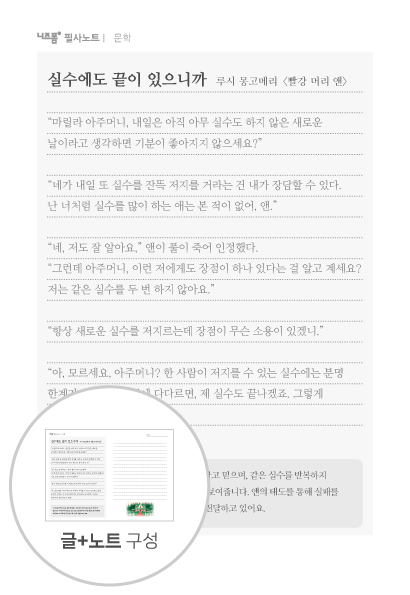 니즈폼 필사노트 | 문학
실수에도 끝이 있으니까 루시 몽고메리 〈빨강 머리 앤〉
“마릴라 아주머니, 내일은 아직 아무 실수도 하지 않은 새로운
날이라고 생각하면 기분이 좋아지지 않으세요?”
“네가 내일 또 실수를 잔뜩 저지를 거라는 건 내가 장담할 수 있다.
난 너처럼 실수를 많이 하는 애는 본 적이 없어, 앤.”
“네, 저도 잘 알아요,” 앤이 풀이 죽어 인정했다.
“그런데 아주머니, 이런 저에게도 장점이 하나 있다는 걸 알고 계세요?
저는 같은 실수를 두 번 하지 않아요.”
“항상 새로운 실수를 저지르는데 장점이 무슨 소용이 있겠니.”
“아, 모르세요, 아주머니? 한 사람이 저지를 수 있는 실수에는 분명
다다르면, 제 실수도 끝나겠죠. 그렇게
믿으며, 같은 실수를 반복하지
보여줍니다. 앤의 태도를 통해 실패를
전달하고 있어요.
글+노트 구성